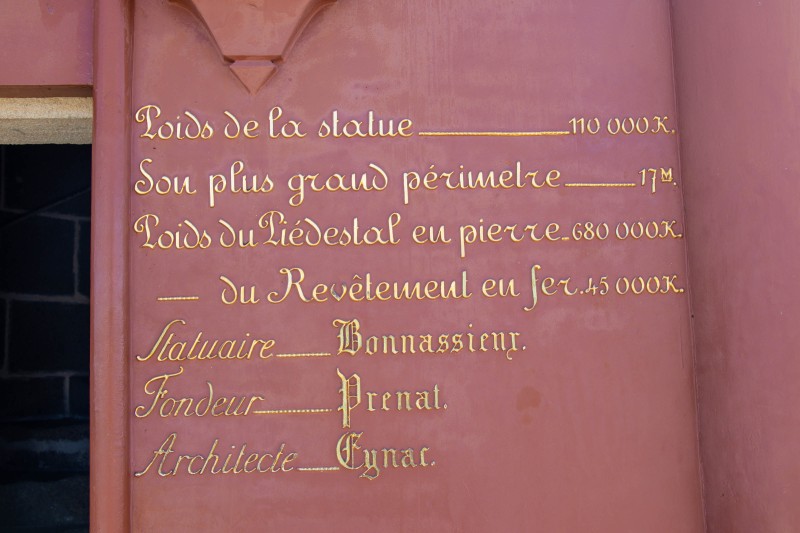 Poids de la statue 110 000K.
Son plus grand périmetre 17M.
Poids du Piédestal en pierre 680 000K.
— du Revêtement en fer. 45 000K.
Statuaire Bonnassieux.
Fondeur Prenat.
Architecte Eynac.